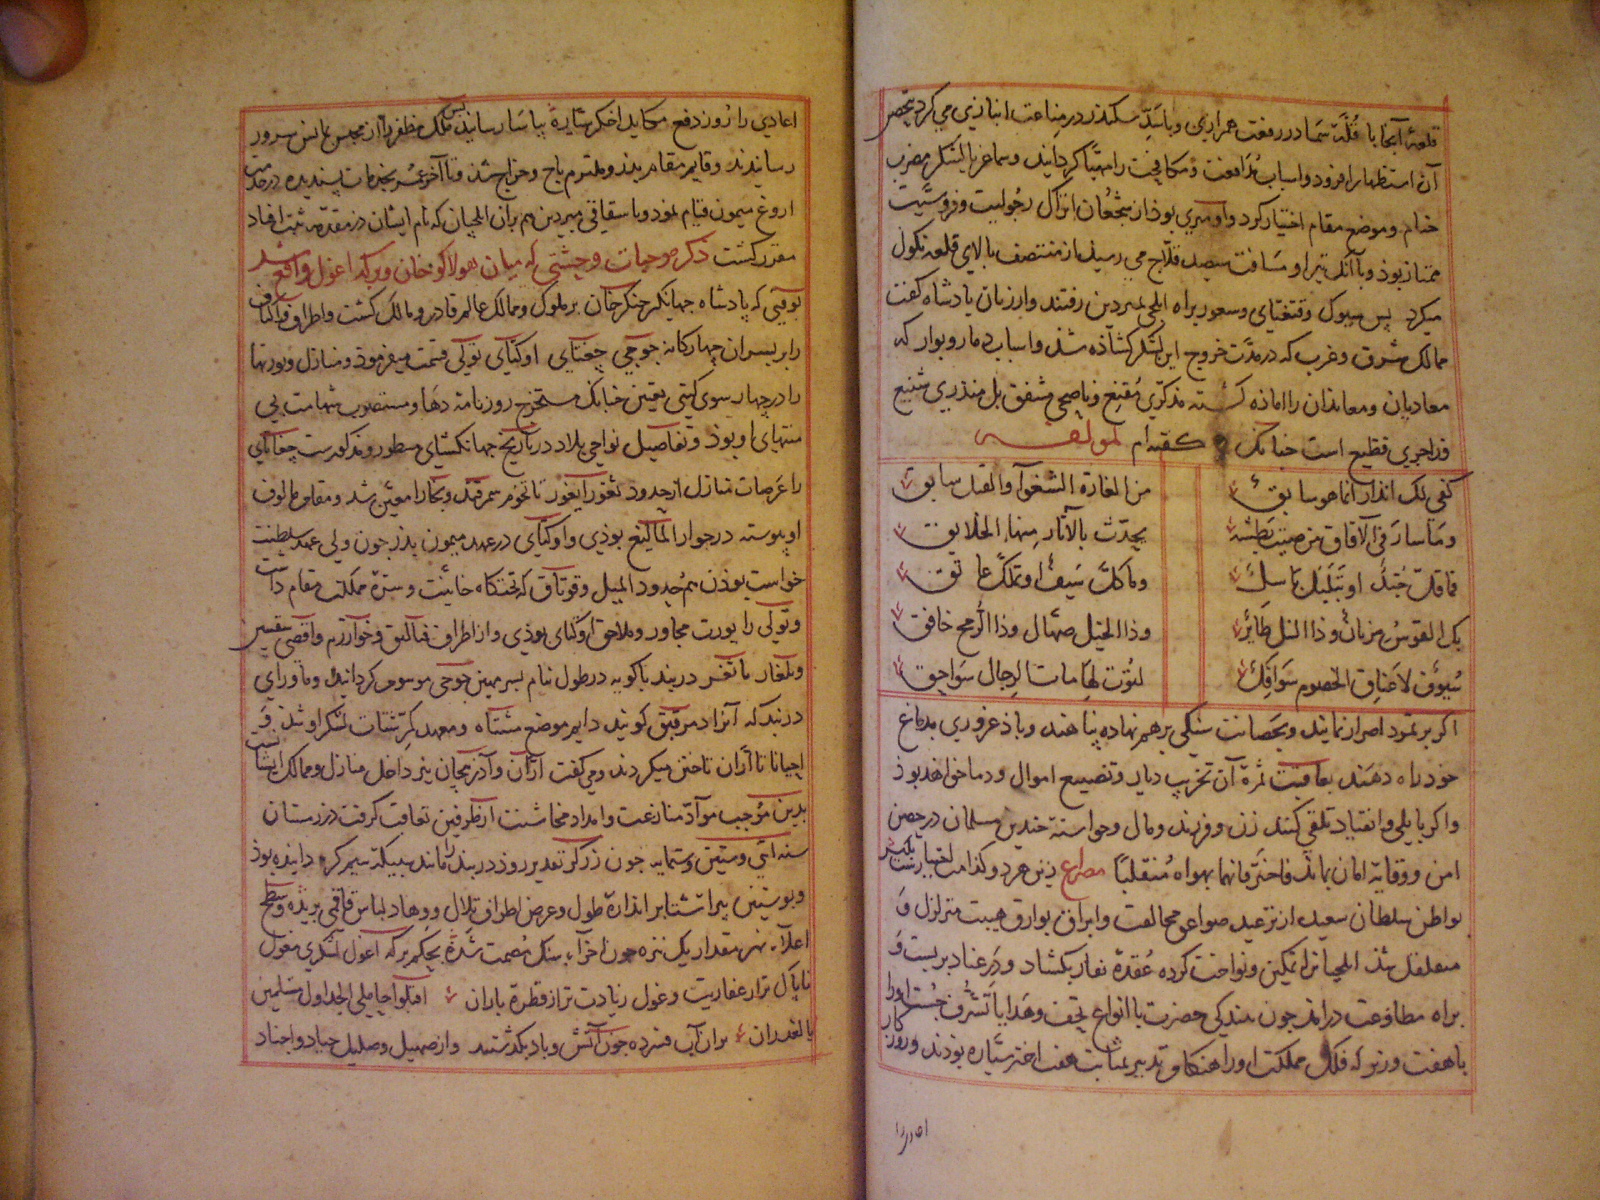 قلعهٔ آنجا با قُلّهٔ سما در رفعت همرازی و با سَدّ سکندر در مناعت انبازی می کرد بتحصن
آن استظهار افزود و اسباب مُدافعت و مکافحت را مهیّا کردانید و سماغر با لشکر مضرب
خیام و موضع مقام اختیار کرد و او میری بوذ از شجعان اتراک رجولیت و فروسیّت
ممتاز بوذ و با آنک تیر او مسافت سیصد قلاج می رسید از منتصف بالای قلعه نکول
میکرد پس سوک و قتغتای و مسعود براه ایلچی بمیردین رفتند و از زبان پادشاه کفت
ممالک شرق و غرب که در مدّت خروج این لشکر کشاذه شذ و اسباب دمار و بوار که
معادیان و معاندان را اماذه کشته مذکّری مُقنع و ناصحی مشفق بل منذری شنیع
و زاجری فظیع است چنانک کفته ام لمولفه
کفی لک انذارا بما هو سابق من الغارة الشعوا والقتل سابق
وما سار فی الآفاق من صیت بطشه یحدّث بالآثار منها الخلایق
فما قلّ جُندٌ او تبلّبل باسلٌ وما کلّ سیفٌ او تملّک عاتق
بل القوس مرنان وذا النبل طایر وذا الخیل صهّال وذا الرمح خافق
سُیوفٌ لاعناق الخصوم سوافک لیُوت لهامات الرجال سواحق
اکر بر تمرد اصرار نمایند و بحصانت سنکی بر هم نهاده پناهند و باذ غروری بدماغ
خود راه دهند بعاقبت ثمرهٔ آن تخریب دیار و تضییع اموال و دما خواهد بوذ
و اکر بایلی و انقیاد تلقی کنند زن و فرزند و مال و خواسته چندین مسلمان در حصن
امن و وقایهٔ امان بماند فاختر فانهما بهواه مُنقلبًا مصراع زین هر دو کذامت اختیارست بکیر
بواطن سلطان سعید از ترعید صواعق مخالفت و ابراق بوارق هیبت متزلزل و
متقلقل شذ ایلچیانرا تمکین و نواخت کرده عُقدهٔ نقار بکشاد و درِ عناد بر بست و
براه مطاوعت درامذ چون بندکی حضرت با انواع تحف و هدایا تشرّف جُست او را
با هفت وزیر که فلک مملکت او را هنکام تدبیر بمثابت هفت اختر سیّاره بوذند و روز کار
اعادی را
اعادی را روز دفع مکاید اخکر ستاره بیاسا رسانیدند پس ملک مظفر را از محبس بمانس سرور
رسانیدند و قایم مقام پدر و ملتزم باج و خراج شذ و تا آخر عمر بخدمات پسندیده در خدمت
اروغ میمون قیام نمود و باسقاقی میردین هم بران ایلچیان که نام ایشان در مقدّمه ثبت افتاد
مقرر کشت ذکر موجبات وحشتی که میان هولاکو خان و برکه اغول واقع شد
بوقتی که پادشاه جهانکیر چنکز خان بر ملوک و ممالک عالم قادر و مالک کشت و اطراف و اکناف
را بر پسران چهارکانه جوجی چغتای اوکتای تولی قسمت میفرموذ و منازل و یورتها
را در چهار سوی کیتی تعیین چنانک مستخرج روزنامهٔ دها و مستصوب شهامت بی
منتهای او بوذ و تفاصیل نواحی بلاد در تاریخ جهانکشای مسطور و مذکورست چغاتای
را عرصات منازل از حدود ثغور ایغور تا تخوم سمرقند و بخارا معین شد و مقام مالوف
او پیوسته در جوار المالیغ بوذی و اوکتای در عهد میمون پدر چون ولی عهد سلطنت
خواست بوذن هم بحدود ایمیل و قوتاق که تختکاه خانیّت و سرّهٔ مملکت مقام داشت
و تولی را یورت مجاور و ملاحق اوکتای بوذی و از اطراف قیالیق و خوارزم و اقصی سقسین
و بلغار تا ثغر دربند باکویه در طول بنام پسر مهین جوجی موسوم کردانید و ماورای
دربند که آنرا دمرقبق کویند دایم موضع مشتاه و معهد کرّ شتات لشکر او شذ و
احیانا تا ارّان تاختن میکردند و می کفت ارّان و آذربیجان نیز داخل منازل و ممالک ایشانست
بدین مُوجب موادّ منازعت و امداد مخاشنت از طرفین تعاقب کرفت در زمستان
سنه اثنی و ستین و ستمایه چون زرکر تقدیر روذ دربند را مانند سبیکهٔ سیم کردانیده بوذ
و پوستین پیرای شتا بر اندازهٔ طول و عرض اطراف تلال و وهاد لباس قاقمی بریذه و سطح
اعلآء نهر مقدار یک نیزه چون اجزآء سنک مُصمت شده بحکم برکه اغول لشکری مغول
ناپاک تر از عفاریت و غول زیادت تر از قطرهٔ باران اقبلوا حاملی الجداول مسلمین
بالغدران بران آب فسرده چون آتش و باد بکذشتند و از صهیل و صلیل جیاد و اجناد